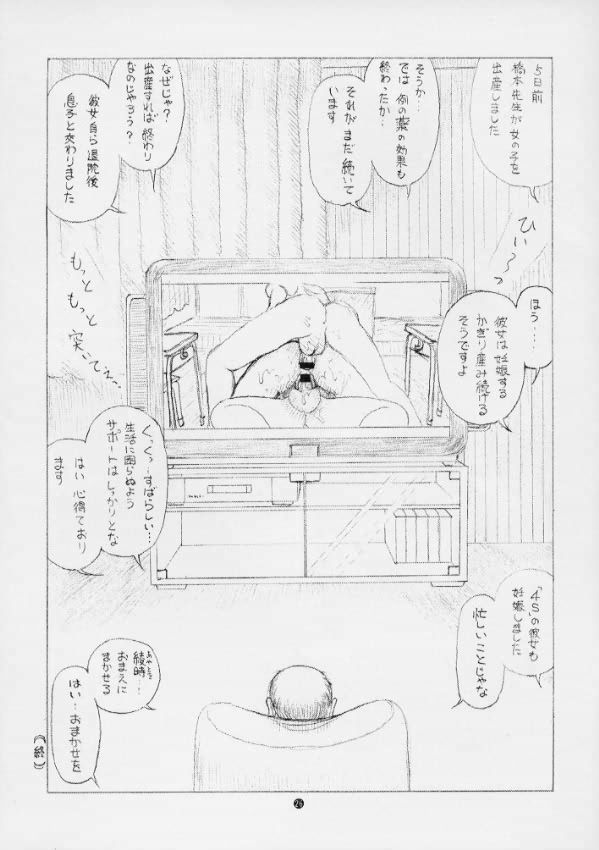 5日前
橋本先生が
女の子を
出産しました
そうか…
では 例の薬の効果も
終わったか…
それがまだ続いて
います
なぜじゃ?
出産すれば終わり
なのじゃろう?
彼女自ら退院後
息子と交わりました
ひい〜っ
もっと
もっと
突いてぇ…
ほう…
彼女は妊娠する
かぎり産み続ける
そうですよ
くっくっ…すばらしい…
生活に困らぬよう
サポートはしっかりとな
はい 心得ており
ます
「4S」の彼女も
妊娠しました
忙しいことじゃな
綾時…
おまえに
まかせる
はい…おまかせを
(終)
26